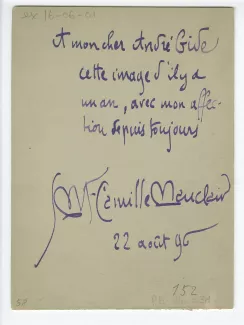 A mon cher André Gide
cette image d'il y a
un an, avec mon affec-
tion depuis toujours
Camille Mauclair
22 août 96
152